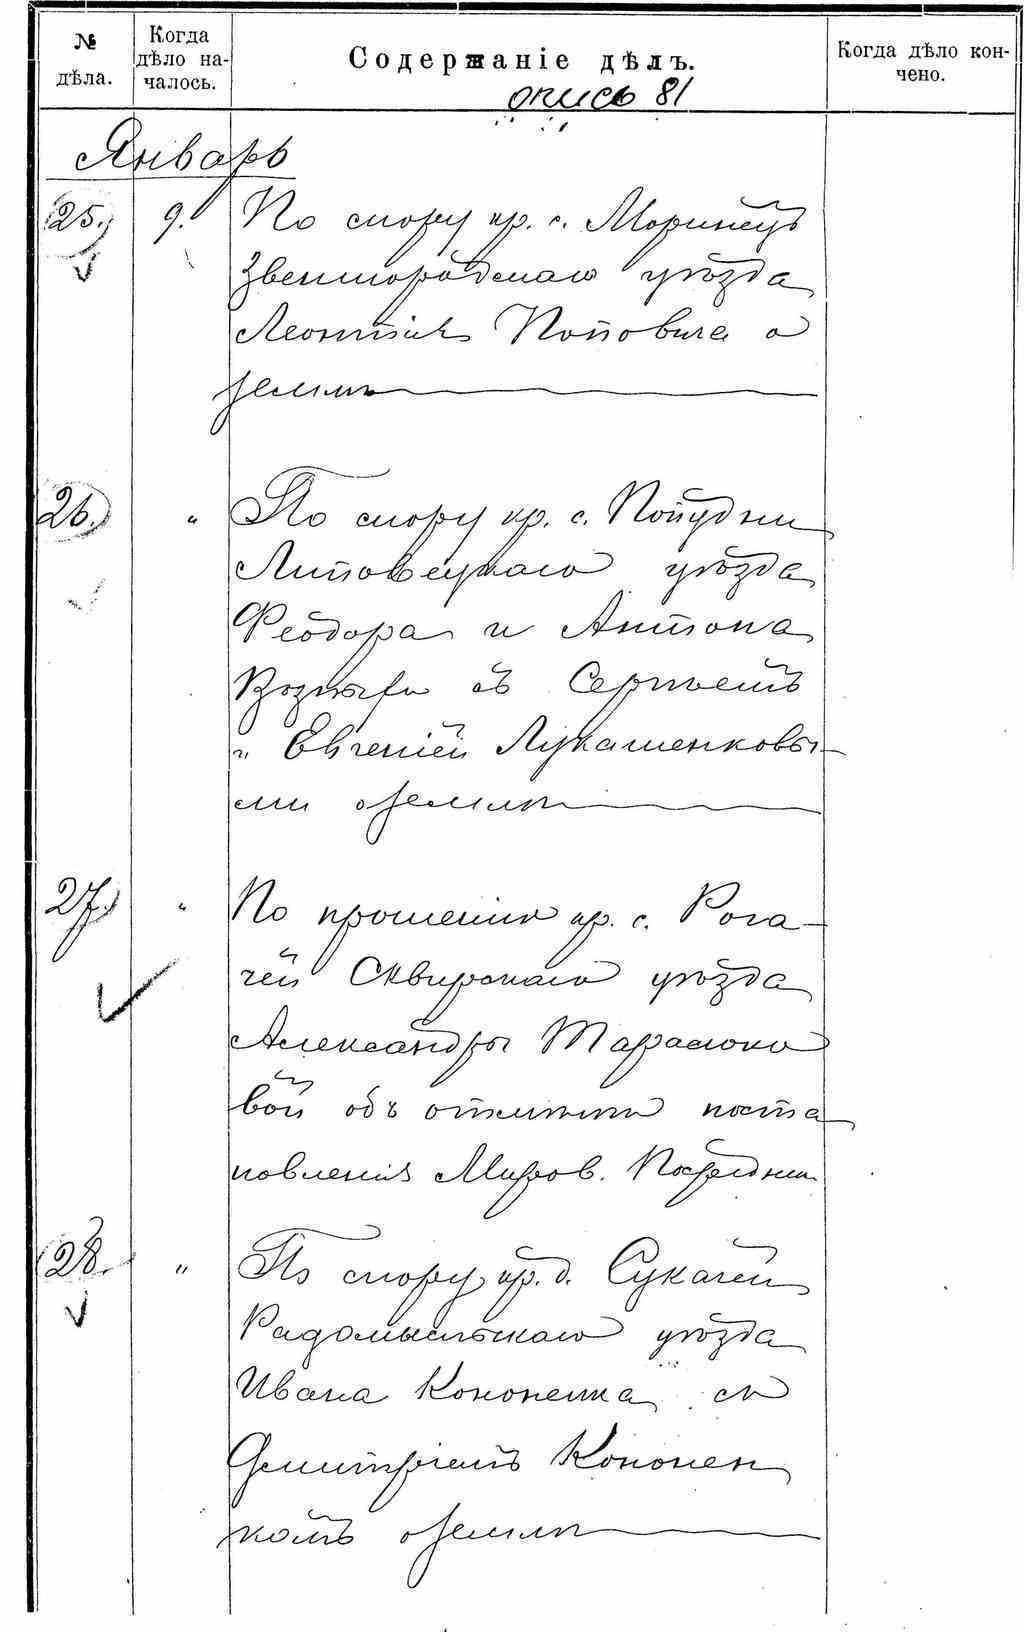 № дѣла.
Когда дѣло началось.
Содержаніе дѣлъ.
Когда дѣло кончено.
опись 81
Январь
25. 9. По спору кр. с. Моринецъ
Звенигородскаго уѣзда
Леонтія Поповича о
землѣ
26. " По спору кр. с. Попудни
Липовецкаго уѣзда
Феодора и Антона
съ Сергѣемъ
и Евгеніей Лукашенковы-
ми о землѣ
27. " По прошенію кр. с. Рога-
чей Сквирскаго уѣзда
Александры Тарасюко
вой объ отмѣнѣ поста
новленія Миров. Посредни
28. " По спору кр. д. Сукачей
Радомысльскаго уѣзда
Ивана Кононенка съ
Дмитріемъ Кононен
комъ о землѣ